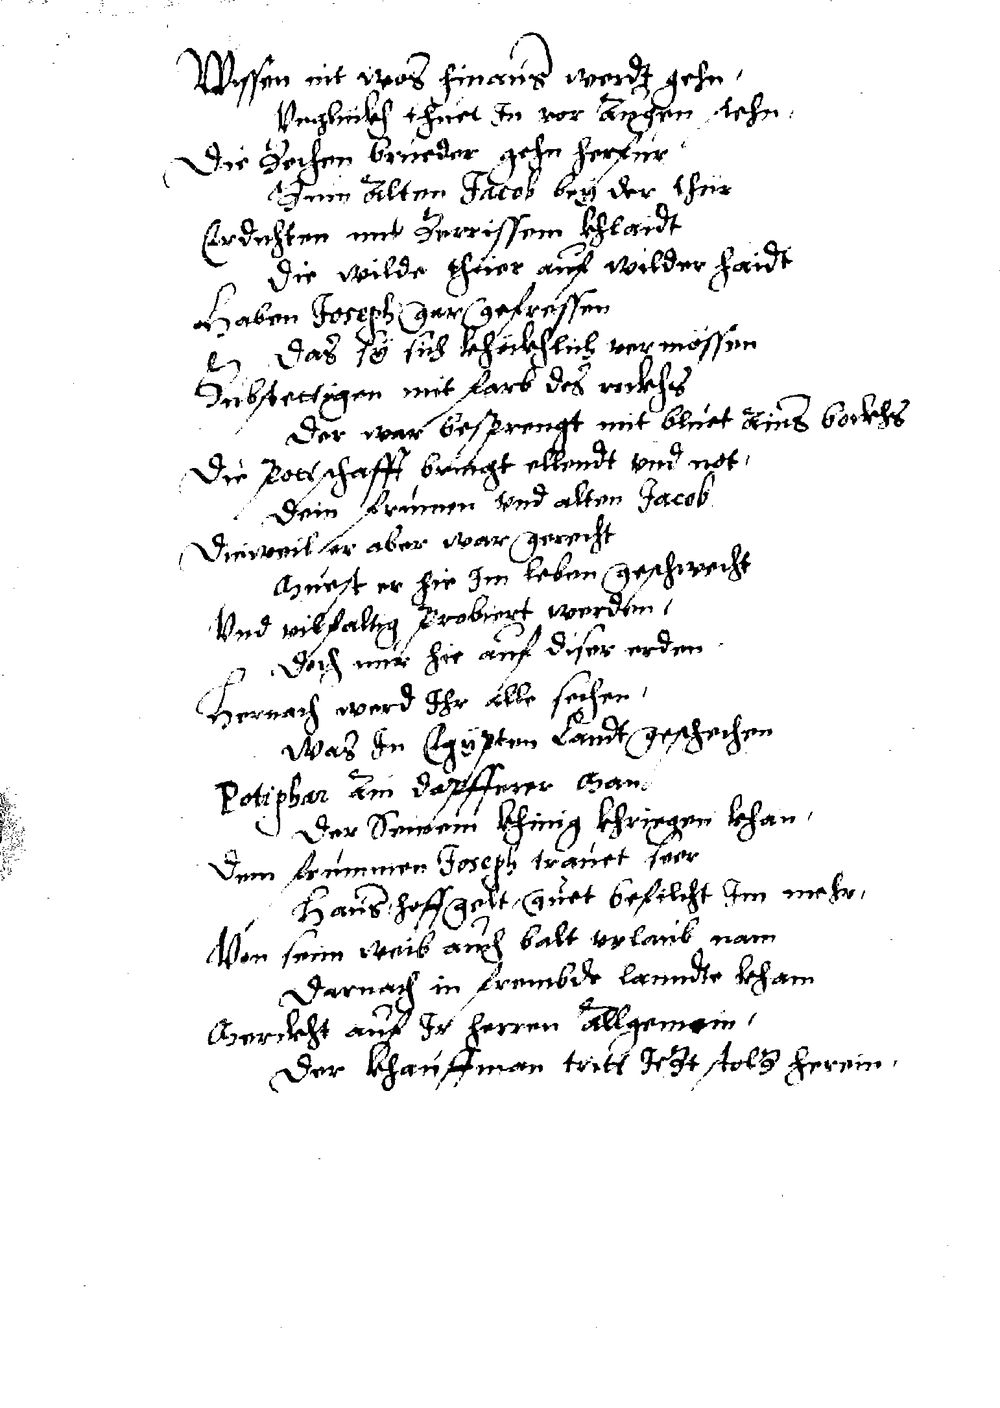 Wissen nit wos hinaus werdt gehn,
Vnglückh thuet In vor Augen stehn,
Die Zechen brüeder gehn herfür
Zum Alten Jacob bey der thür
Erdichten mit Zerrissem khlaidt
Die wilde thier auf wilder haidt
Haben Joseph gar gefressen
Das sÿ sich khöckhlich vermössen
Zubstettigen mit farb des rockhs
Der war besprengt mit bluet Ains bockhs
Die Pottschafft bringt ellendt vnd not,
Dem frumen vnd alten Jacob
Dieweil er aber war gerecht
Muest er hie Im leben geschwecht
Vnd vilfaltig Probiert werden,
Doch nur hie auf diser erden
Hernach werd Ihr alle sechen,
Was In Egÿpten Landt geschechen
Potiphar Ain dapfferer Man
Der Seinem khinig khriegen khan,
Dem frummen Joseph trauet seer
Haus, hoff, gelt, guet befilcht Im mehr,
Von seim weib auch balt vrlaub nam
Darnach in frembde lanndte kham
Merckht auf Ir herren Allgemein,
Der khauffman tritt Jetzt stolz herein,